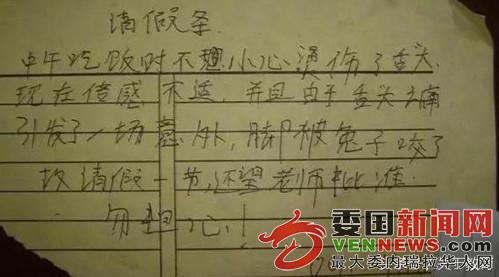 请假条
中午吃饭时不小心烫伤了舌头
现在倍感不适，并且由于舌头之痛
引发了一场意外，脚被兔子咬了
故请假一节，还望老师批准
勿担心！
委国新闻网
VENNEWS.COM
最大委内瑞拉华人网